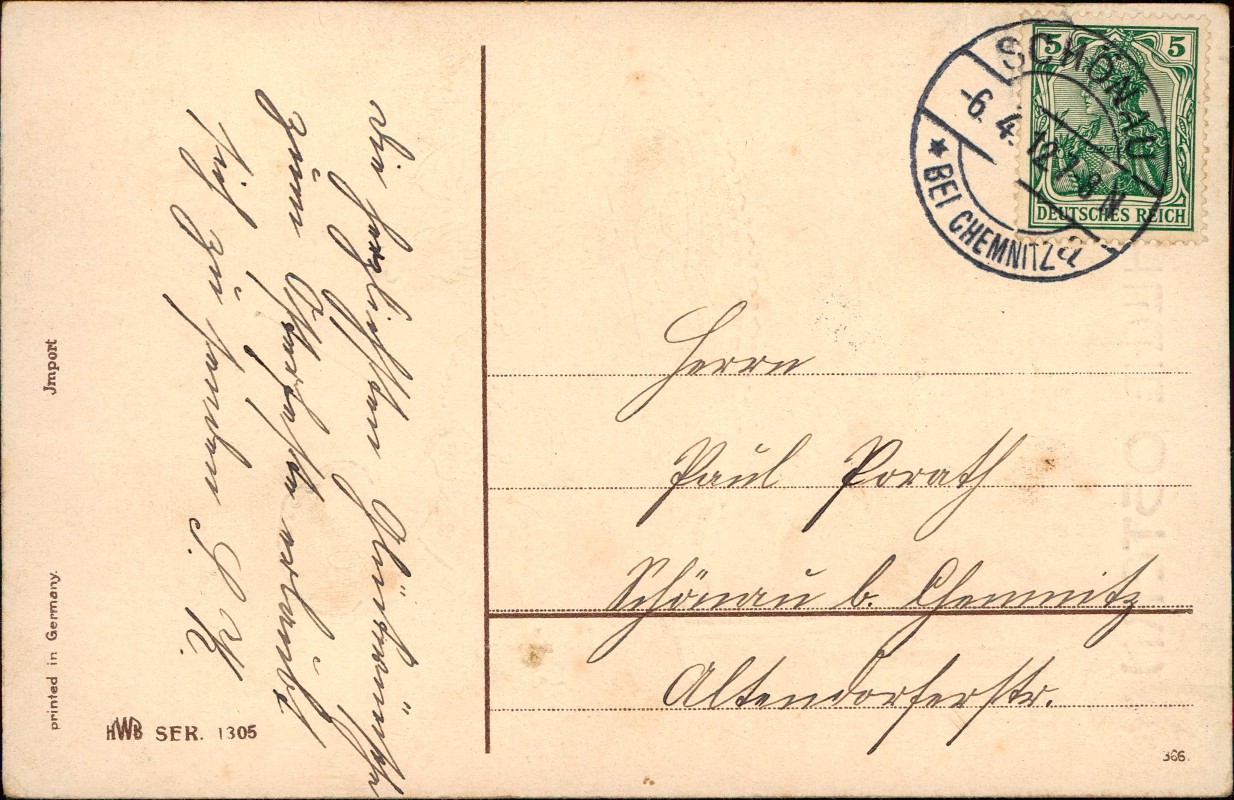 Die herzlichsten Glückwünsche
zum Osterfeste erlaubt
sich zu senden
Jmport
printed in Germany.
HWB SER. 1305
SCHÖNAU
-6.4.12.7-8N
* BEI CHEMNITZ a
5 5
DEUTSCHES REICH
Herrn
Paul Porath
Schönau b. Chemnitz
Altendorferstr.
366.